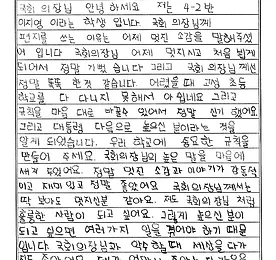 국회 의장님 안녕 하세요 저는 4-2반
이지영 이라는 학생 입니다 국회 의장님께
편지를 쓰는 이유는 어제 멋진 소감을 말해주셨
어 입니다 국회의장님 어제 멋지시고 처음 뵙게
되어서 정말 기뻤 습니다 그리고 국회의장님 께선
정말 똑똑 한것 같습니다 어렸을때 고성 초등
학교를 다 다니지 못해서 아쉽네요 그리고
규칙을 마음 대로 바꿀수 있어서 정말 신기 했어요
그리고 대통령 다음으로 높으신 분이라는 것을
알게 되었습니다. 우리 학교에 중요한 규칙을
만들어 주세요. 국회의장님의 높은 말을 마음에
새겨 두었어요. 정말 멋진 소감과 이야기가 감동적
이고 재미 있고 정말 좋았어요 국회의장님께서는
딱 봐도 멋지신분 같아요. 저도 국회의장님 처럼
훌륭한 사람이 되고 싶어요. 그렇게 높으신 분이
되고 싶으면 여러가지 일을 겪어야 하기 때문
입니다 국회의장님과 악수할때 세상을 다가